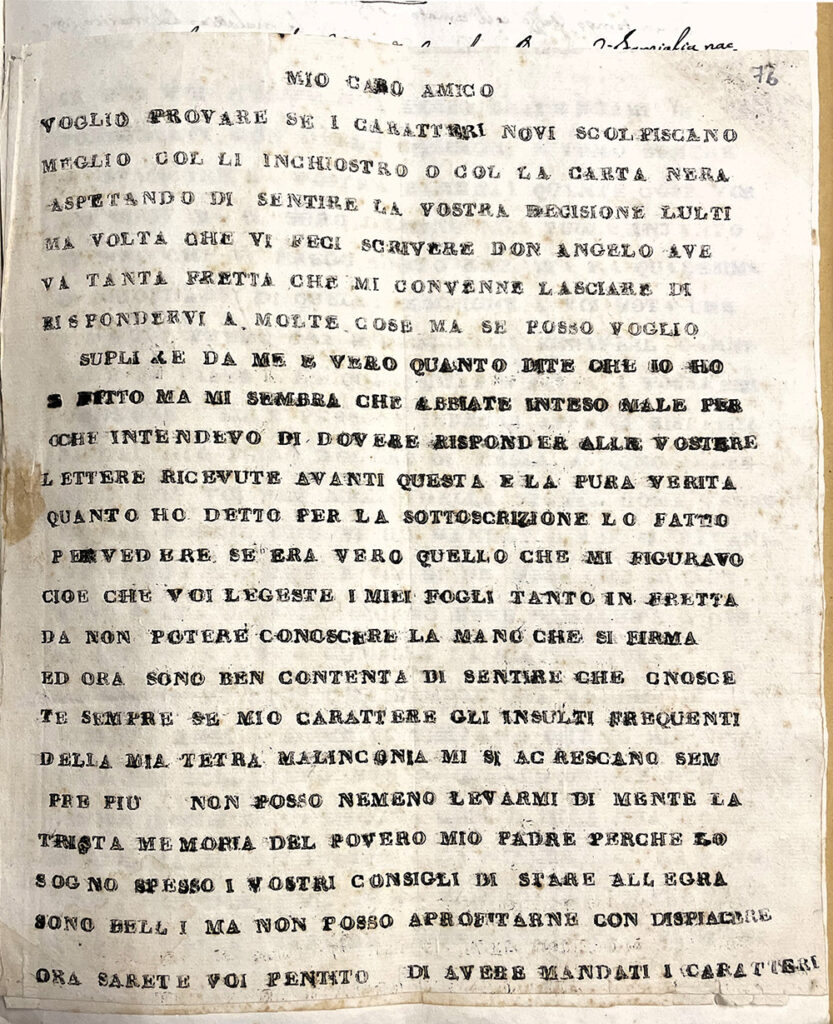 76
MIO CARO AMICO
VOGLIO PROVARE SE I CARATTERI NOVI SCOLPISCANO
MEGLIO COL LI INCHIOSTRO O COL LA CARTA NERA
ASPETANDO DI SENTIRE LA VOSTRA DECISIONE LULTI
MA VOLTA CHE VI FECI SCRIVERE DON ANGELO AVE
VA TANTA FRETTA CHE MI CONVENNE LASCIARE DI
RISPONDERVI A MOLTE COSE MA SE POSSO VOGLIO
SUPLIRE DA ME E VERO QUANTO DITE CHE IO HO
FITTO MA MI SEMBRA CHE ABBIATE INTESO MALE PER
OCHE INTENDEVO DI DOVERE RISPONDER ALLE VOSTERE
LETTERE RICEVUTE AVANTI QUESTA E LA PURA VERITA
QUANTO HO DETTO PER LA SOTTOSCRIZIONE LO FATTO
PERVEDERE SE ERA VERO QUELLO CHE MI FIGURAVO
CIOE CHE VOI LEGESTE I MIEI FOGLI TANTO IN FRETTA
DA NON POTERE CONOSCERE LA MANO CHE SI FIRMA
ED ORA SONO BEN CONTENTA DI SENTIRE CHE CNOSCE
TE SEMPRE SE MIO CARATTERE GLI INSULTI FREQUENTI
DELLA MIA TETRA MALINCONIA MI SI AC RESCANO SEM
PRE PIU NON POSSO NEMENO LEVARMI DI MENTE LA
TRISTA MEMORIA DEL POVERO MIO PADRE PERCHE LO
SOGNO SPESSO I VOSTRI CONSIGLI DI STARE ALLEGRA
SONO BELLI MA NON POSSO APROFITARNE CON DISPIACERE
ORA SARETE VOI PENTITO DI AVERE MANDATI I CARATTERI